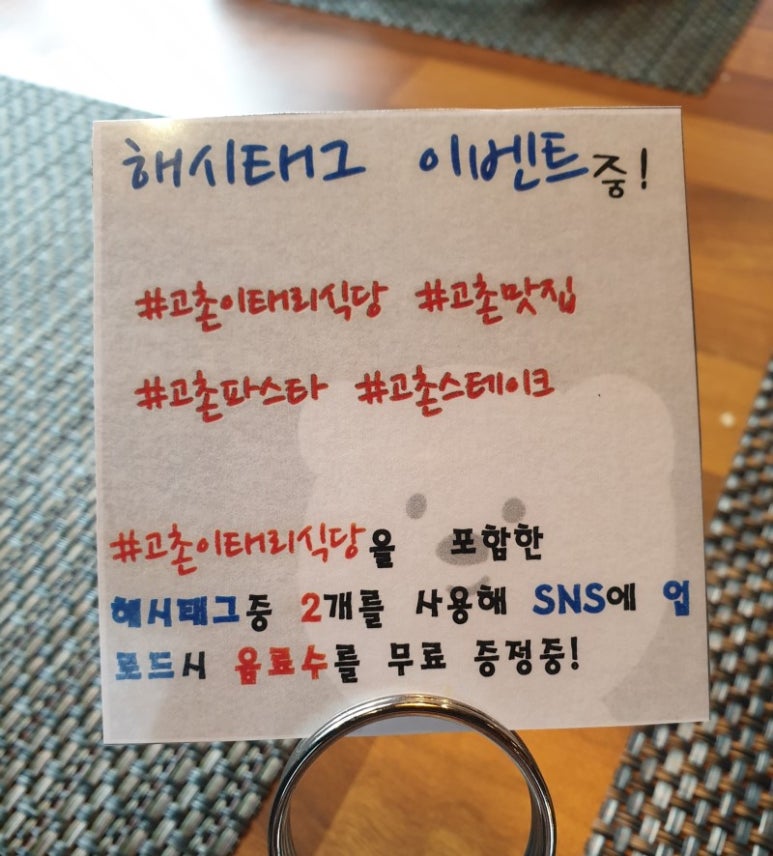 해시태그 이벤트중!
#고촌이태리식당 #고촌맛집
#고촌파스타 #고촌스테이크
#고촌이태리식당을 포함한
해시태그중 2개를 사용해 SNS에 업
로드시 음료수를 무료 증정중!